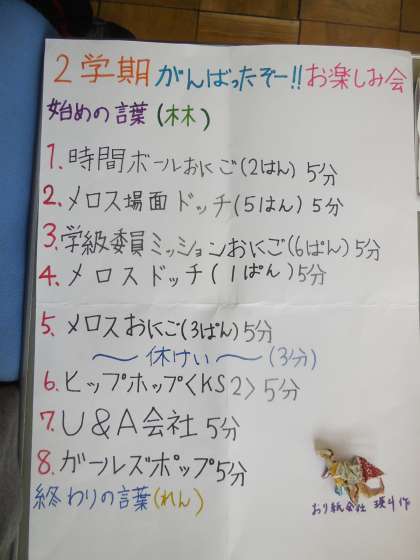 2学期がんばったぞー!!お楽しみ会
始めの言葉(林)
1.時間ボールおにご(2はん)5分
2.メロス場面ドッチ(5はん)5分
3.学級委員ミッションおにご(6ぱん)5分
4.メロスドッチ(1ぱん)5分
5.メロスおにご(3ぱん)5分
〜休けい〜(3分)
6.ヒップホップ<KS2>5分
7.U&A会社5分
8.ガールズポップ5分
終わりの言葉(れん)
おり紙会社 瑛斗作